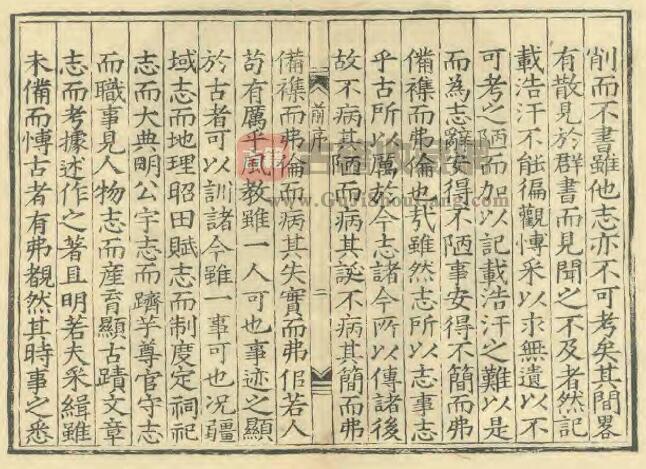 削而不書雖他志亦不可考矣其間畧
有散見於群書而見聞之不及者然記
載浩汗不能徧觀博采以求無遺以不
可考之陋而加以記載浩汗之難以是
而為志辭安得不陋事安得不簡而弗
備襍而弗倫也㢤雖然志所以志事志
乎古所以厲於今志諸今所以傳諸後
故不病其陋而病其誕不病其簡而弗
前序
二
備襍而弗倫而病其失實而弗信若人
苟有厲乎風教雖一人可也事迹之顯
於古者可以訓諸今雖一事可也况疆
域志而地理昭田賦志而制度定祠祀
志而大典明公宇志而躋羊尊官守志
而職事見人物志而産育顯古蹟文章
志而考據述作之著且明若夫采緝雖
未備而慱古者有弗覩然其時事之悉
www.GujiShouCang.com